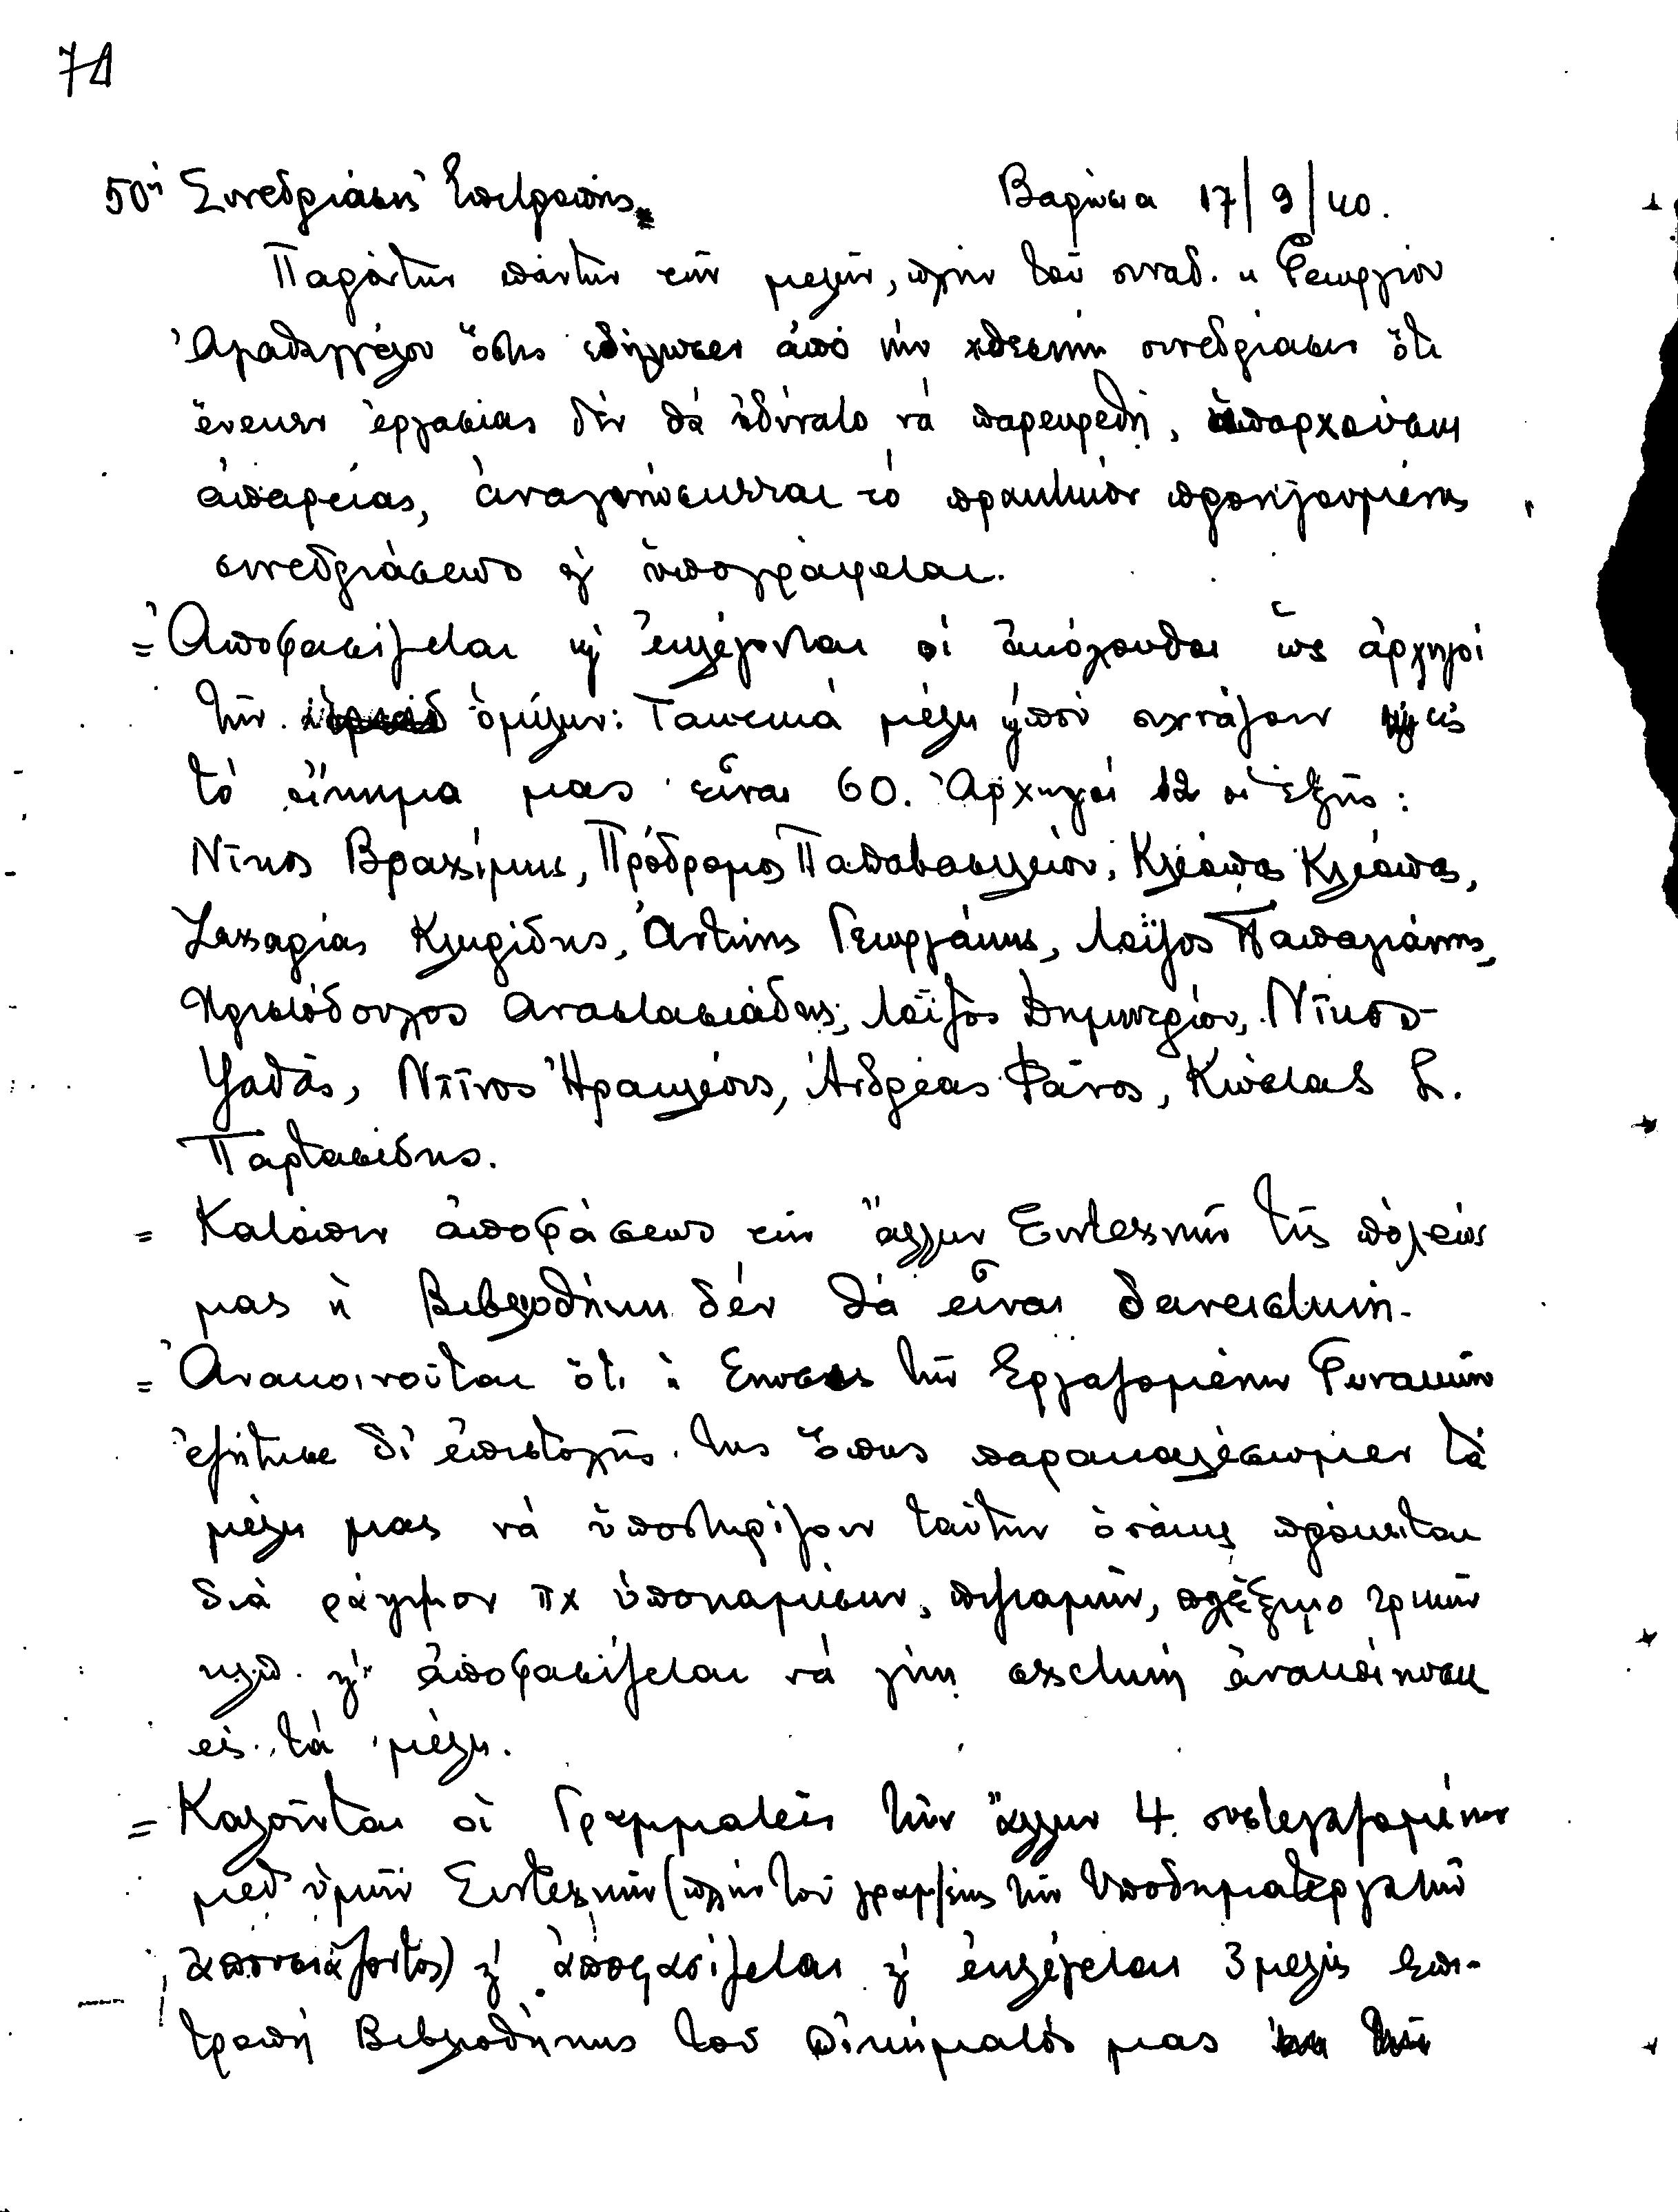 71
50ή Συνεδρίασις Ἐπιτροπῆς. Βαρώσια 17/9/40.
Παρόντων πάντων τῶν μελῶν, πλὴν τοῦ συναδ. κ Γεωργίου
Ἀγαθαγγέλου ὅστις ἐδήλωσεν ἀπό τὴν χθεσινὴν συνεδρίασιν ὅτι
ἕνεκεν ἐργασίας δέν θά ἠδύνατο νά παρευρεθῇ, ὑπαρχούσης
ἀπαρτίας, ἀναγινώσκεται τό πρακτικόν προηγουμένης
συνεδριάσεως κ' ὑπογράφεται.
= Ἀποφασίζεται κ' ἐκλέγονται οἱ ἀκόλουθοι ὡς ἀρχηγοί
τῶν ὁμίλων: Τακτικά μέλη ποὺ συχνάζουν εἰς
τό οἴκημα μας εἶναι 60. Ἀρχηγοί 12 οἱ ἑξῆς:
Νῖκος Βραχίμης, Πρόδρομος Παπαβασιλείου, Κλεόπας Κλεόπας,
Ζαχαρίας Κληρίδης, Ἀντώνης Γεωργάκης, Λοΐζος Παπαγιάννης,
Χριστόδουλος Αναστασιάδης, Λοΐζος Δημητρίου, Νῖκος
Ψαθᾶς, Ντῖνος Ἡρακλέους, Ἀνδρέας Φάνος, Κώστας Σ.
Παρτασίδης.
= Κατόπιν ἀποφάσεως τῶν ἄλλων Συντεχνιῶν τῆς πόλεώς
μας ἡ Βιβλιοθήκη δέν θά εἶναι δανειστική.
= Ἀνακοινοῦται ὅτι ἡ Ενωσις τῶν Εργαζομένων Γυναικῶν
ἐζήτησε δι' ἐπιστολῆς της ὅπως παρακαλέσωμεν τά
μέλη μας νά ὑποστηρίζουν ταύτην ὁσάκις πρόκειται
διὰ ράψιμον πχ ὑποκαμίσων, πιζιαμῶν, πλέξιμο τρικῶν
κλπ. κ' ἀποφασίζεται νά γίνῃ σχετική ἀνακοίνωσις
εἰς τά μέλη.
= Καλοῦνται οἱ Γραμματεῖς τῶν ἄλλων 4 συστεγαζομένων
μεθ' ὑμῶν Συντεχνιῶν (πλήν τοῦ γραμ/έως τῶν Υποδηματεργατῶν
ἀπουσιάζοντος) κ' ἀποφασίζεται κ' ἐκλέγεται 3μελὴς Επι-
τροπή Βιβλιοθήκης τοῦ οἰκήματός μας ἐκ τῶν